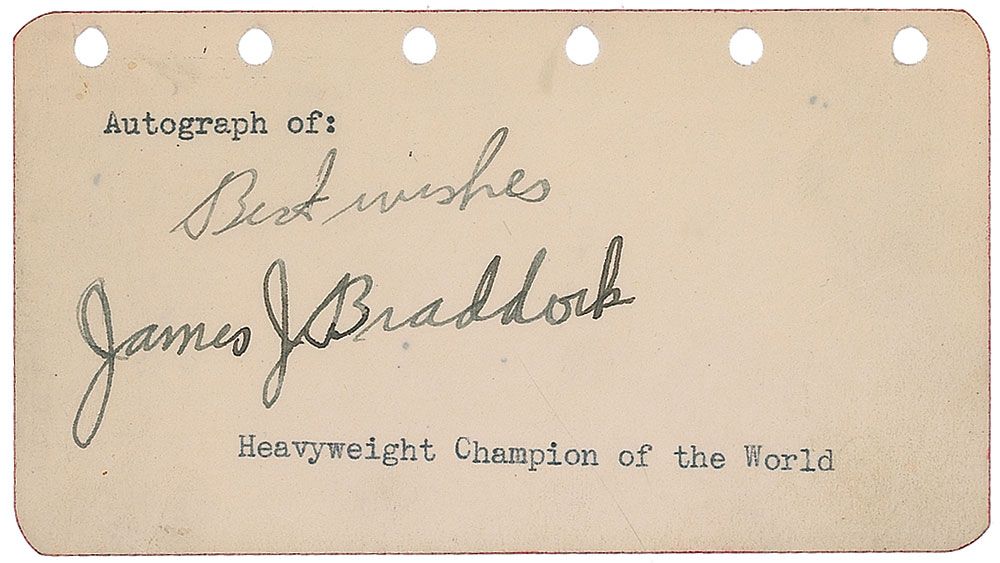 Autograph of:
Best wishes
James J Braddock
Heavyweight Champion of the World